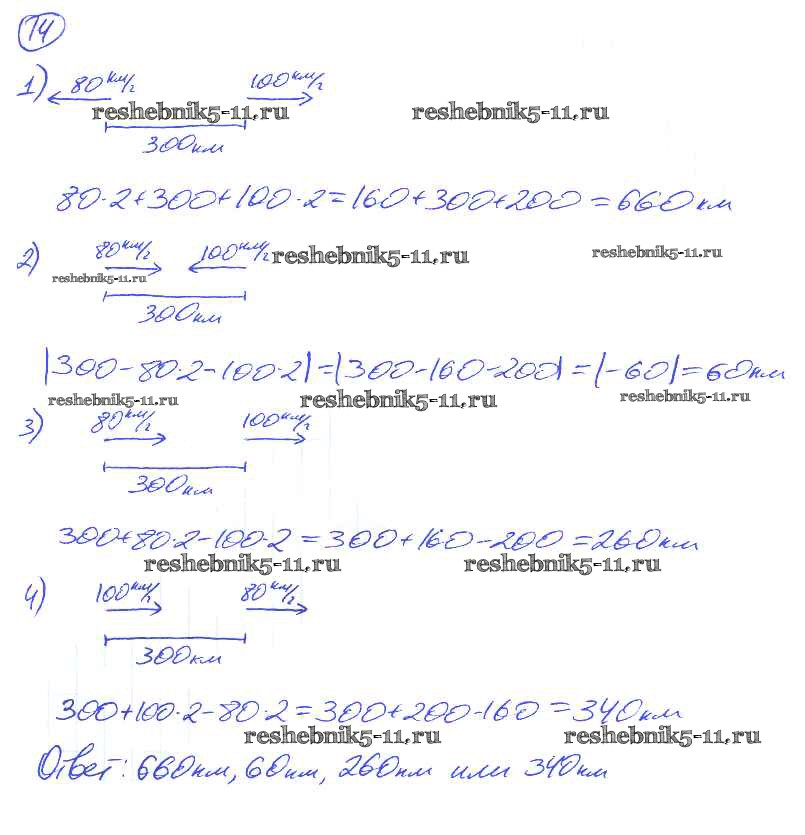 14
1) 80 км/ч 100 км/ч
reshebnik5-11.ru reshebnik5-11.ru
300 км
80·2+300+100·2=160+300+200=660 км
2) 80 км/ч 100 км/ч reshebnik5-11.ru reshebnik5-11.ru
reshebnik5-11.ru
300 км
|300-80·2-100·2|=|300-160-200|=|-60|=60 км
reshebnik5-11.ru reshebnik5-11.ru reshebnik5-11.ru
3) 80 км/ч 100 км/ч
300 км
300+80·2-100·2=300+160-200=260 км
reshebnik5-11.ru reshebnik5-11.ru
4) 100 км/ч 80 км/ч
300 км
300+100·2-80·2=300+200-160=340 км
reshebnik5-11.ru reshebnik5-11.ru
Ответ: 660 км, 60 км, 260 км или 340 км